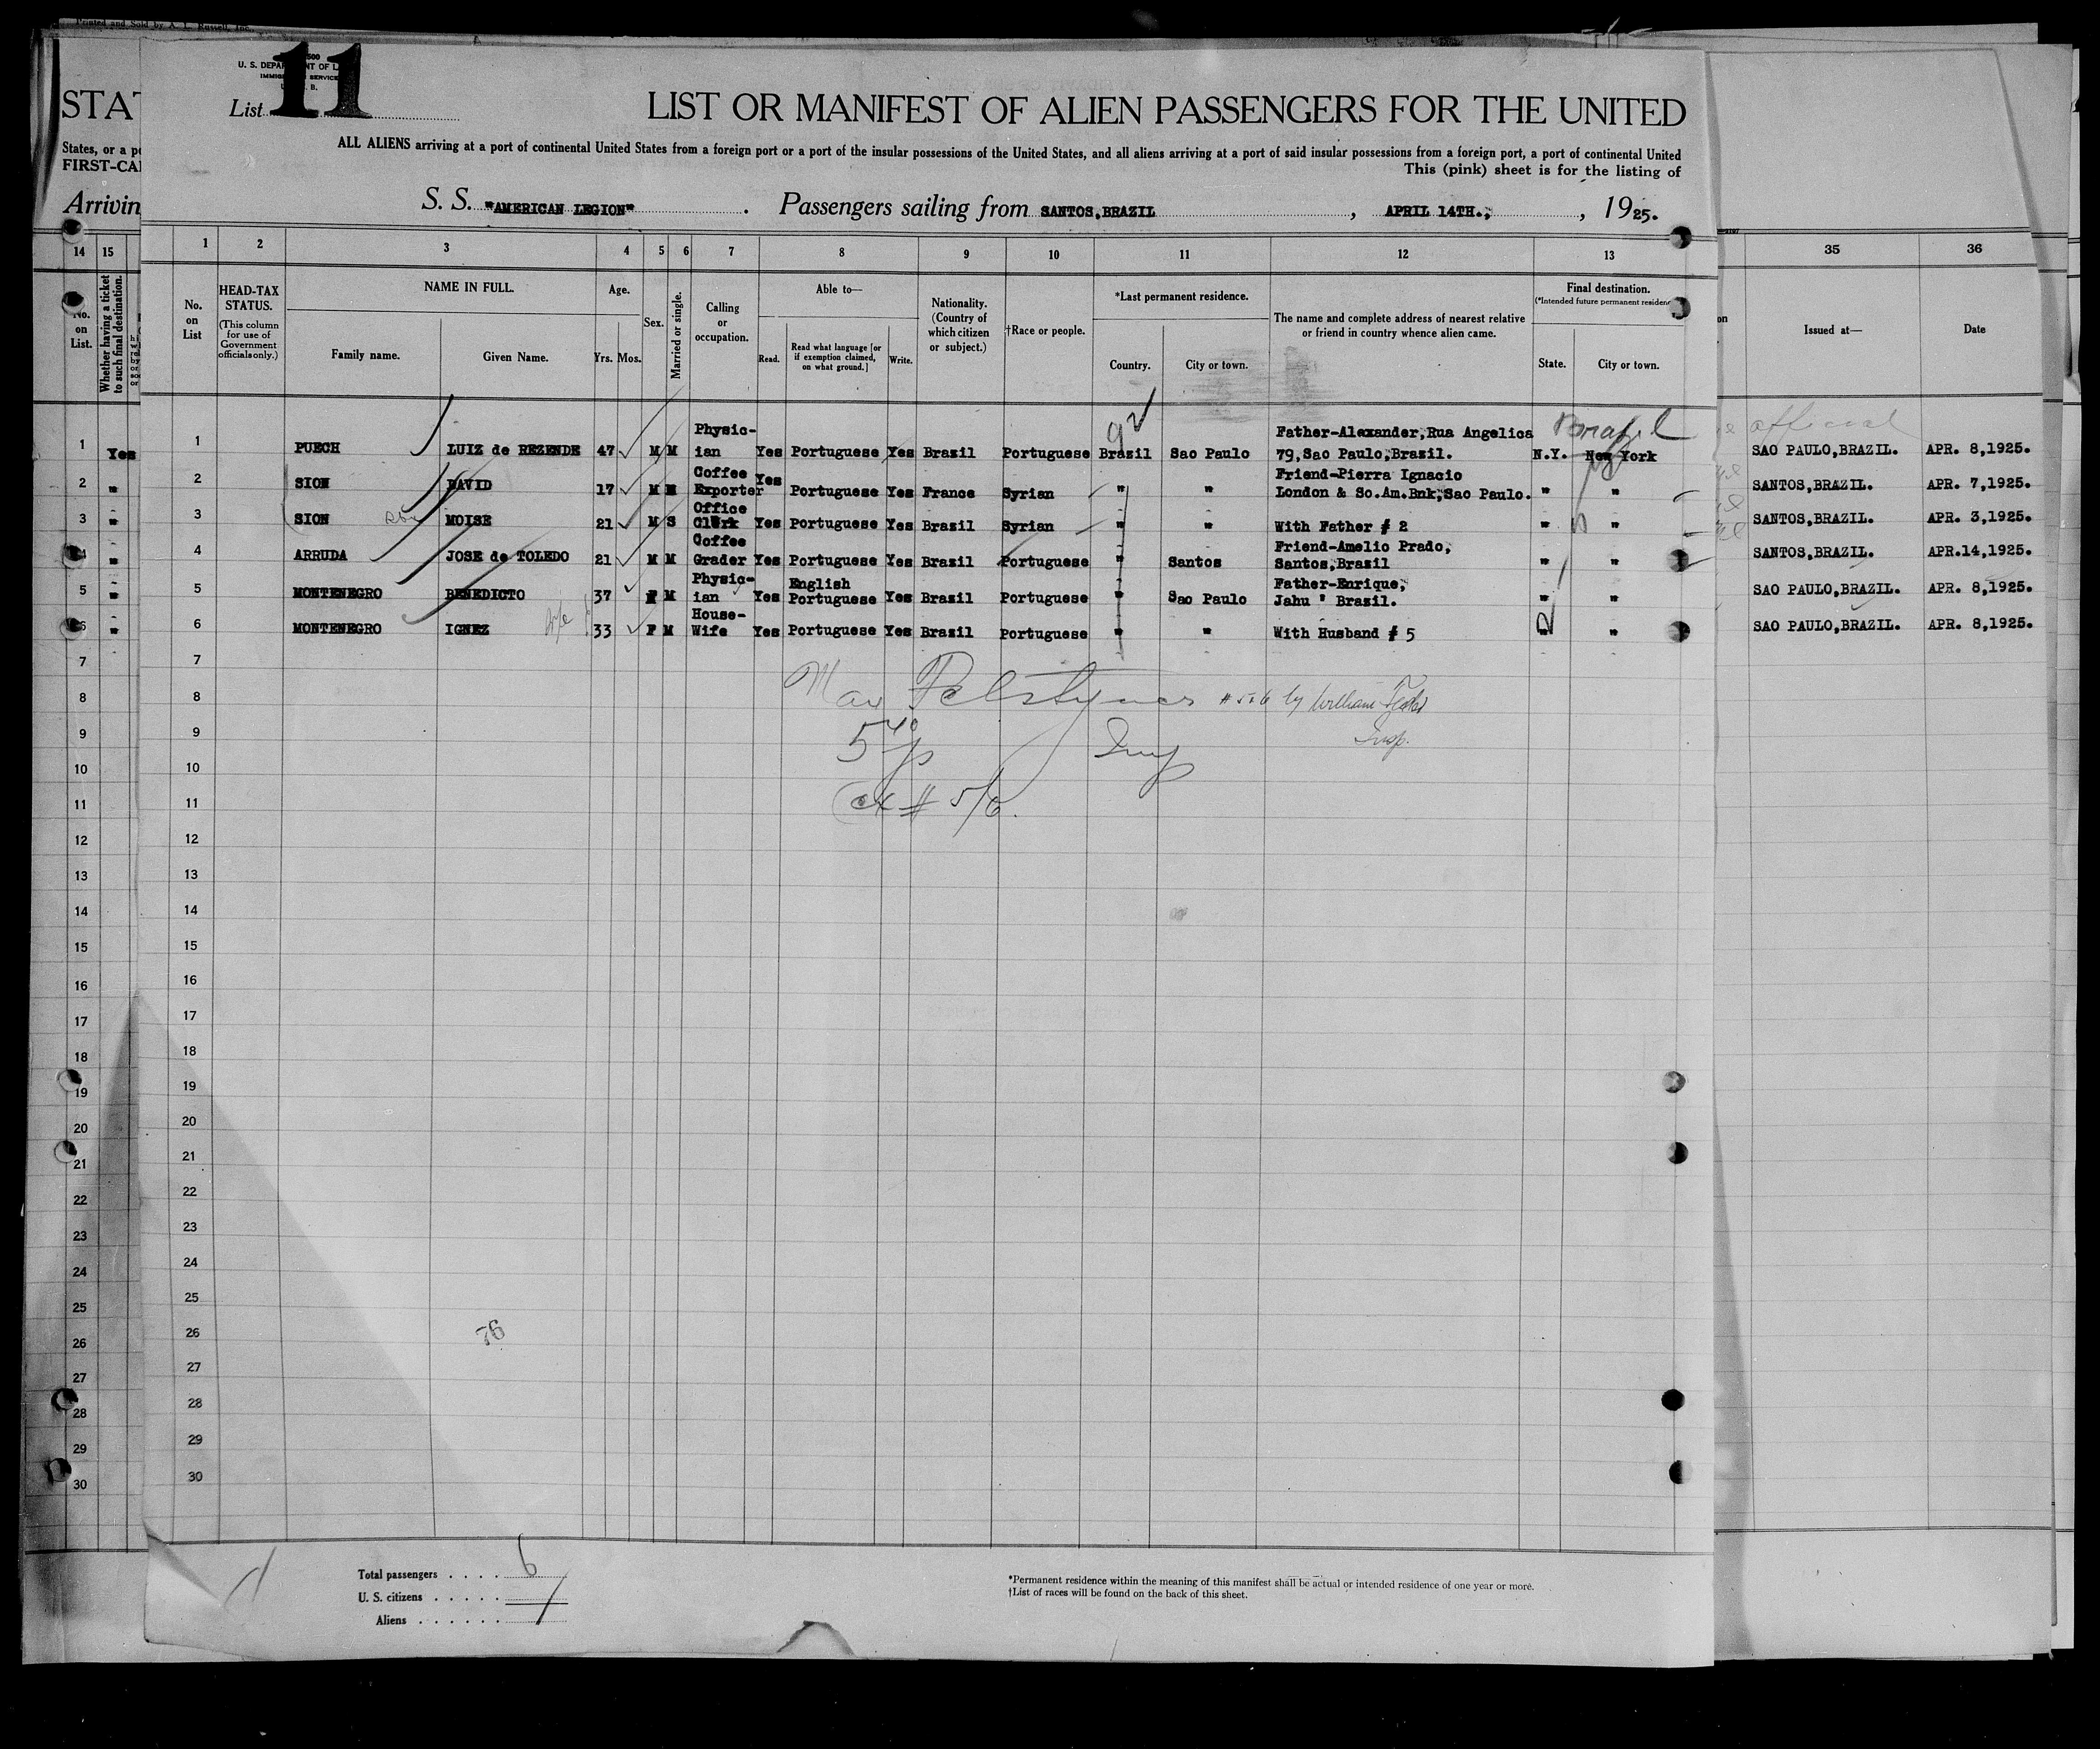 Printed and Sold by A. L. Russell, Inc.
11
U. S. DEPARTMENT OF LABOR
IMMIGRATION SERVICE
List
STAT
LIST OR MANIFEST OF ALIEN PASSENGERS FOR THE UNITED
States, or a po
ALL ALIENS arriving at a port of continental United States from a foreign port or a port of the insular possessions of the United States, and all aliens arriving at a port of said insular possessions from a foreign port, a port of continental United
FIRST-CA
This (pink) sheet is for the listing of
Arrivin
S. S. "AMERICAN LEGION" . Passengers sailing from SANTOS,BRAZIL , APRIL 14TH., , 1925.
14 15 1 2 3 4 5 6 7 8 9 10 11 12 13 35 36
No. on List.
Whether having a ticket to such final destination.
No. on List
HEAD-TAX STATUS.
(This column for use of Government officials only.)
NAME IN FULL.
Family name. Given Name.
Age.
Yrs. Mos.
Sex.
Married or single.
Calling or occupation.
Able to—
Read. Read what language [or if exemption claimed, on what ground.] Write.
Nationality. (Country of which citizen or subject.)
†Race or people.
*Last permanent residence.
Country. City or town.
The name and complete address of nearest relative or friend in country whence alien came.
Final destination.
(*Intended future permanent residence
State. City or town.
Issued at— Date
92
Brazil
official
1 Yes 1 PUECH LUIZ de REZENDE 47 M M Physic-ian Yes Portuguese Yes Brazil Portuguese Brasil Sao Paulo Father-Alexander,Rua Angelica 79,Sao Paulo,Brasil. N.Y. New York SAO PAULO,BRAZIL. APR. 8,1925.
2 " 2 SION DAVID 17 M M Coffee Exporter Yes Portuguese Yes France Syrian " " Friend-Pierra Ignacio London & So.Am.Bnk,Sao Paulo. " " SANTOS,BRAZIL. APR. 7,1925.
3 " 3 SION MOISE 21 M S Office Clerk Yes Portuguese Yes Brazil Syrian " " With Father # 2 " " SANTOS,BRAZIL. APR. 3,1925.
4 " 4 ARRUDA JOSE de TOLEDO 21 M M Coffee Grader Yes Portuguese Yes Brazil Portuguese " Santos Friend-Amelio Prado, Santos,Brasil " " SANTOS,BRAZIL. APR.14,1925.
5 " 5 MONTENEGRO BENEDICTO 37 M Physic-ian Yes English Portuguese Yes Brazil Portuguese " Sao Paulo Father-Enrique, Jahu " Brasil. " " SAO PAULO,BRAZIL. APR. 8,1925.
6 " 6 MONTENEGRO IGNEZ 33 F M House-Wife Yes Portuguese Yes Brazil Portuguese " " With Husband # 5 " " SAO PAULO,BRAZIL. APR. 8,1925.
7
8 8 # 5+6 by William
9 9 Insp.
10 10 Insp
11 11 ex # 5/6.
12 12
13 13
14 14
15 15
16 16
17 17
18 18
19 19
20 20
21 21
22 22
23 23
24 24
25 25
26 26 76
27 27
28 28
29 29
30 30
Total passengers . . . . 6
U. S. citizens . . . . .
Aliens . . . . . .
*Permanent residence within the meaning of this manifest shall be actual or intended residence of one year or more.
†List of races will be found on the back of this sheet.